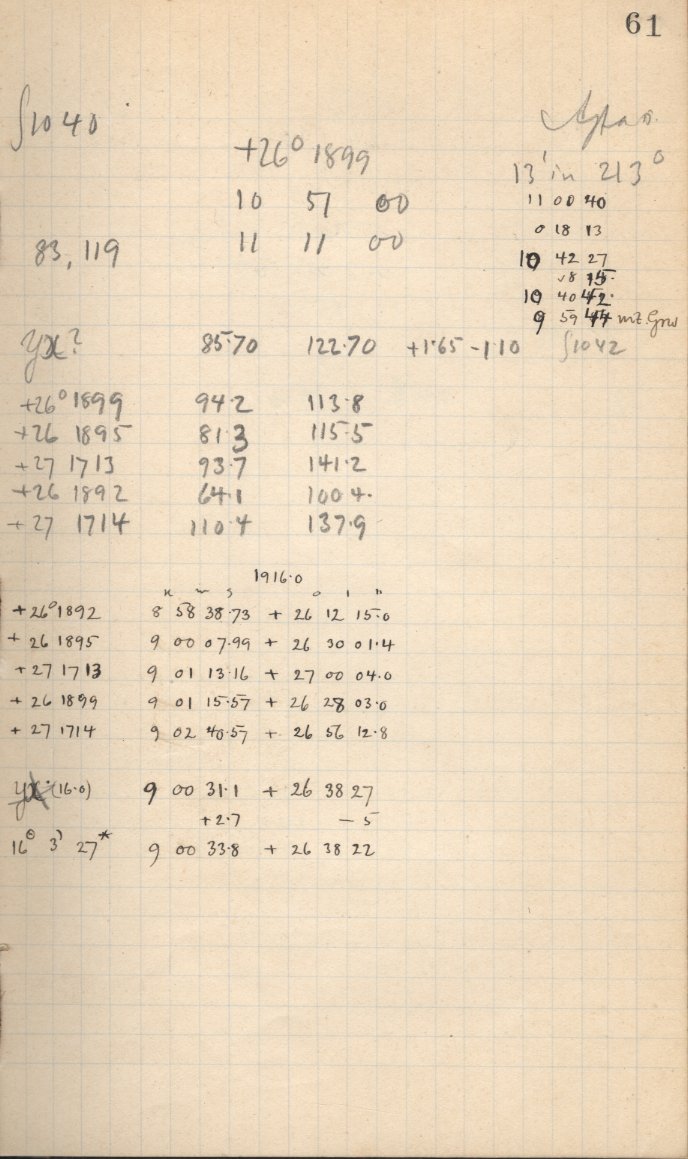 61
∫1040
+26° 1899
10 51 00
11 11 00
83, 119
13' in 213°
11 00 40
0 18 13
10 42 27
10 40 42.
9 59 44 mt. Grw
yx? 85.70 122.70 +1.65 -1.10 ∫1042
+26° 1899 94.2 113.8
+26 1895 81.3 115.5
+27 1713 93.7 141.2
+26 1892 64.1 100.4.
+27 1714 110.4 137.9
1916.0
H m s ° ' "
+26° 1892 8 58 38.73 + 26 12 15.0
+ 26 1895 9 00 07.99 + 26 30 01.4
+ 27 1713 9 01 13.16 + 27 00 04.0
+ 26 1899 9 01 15.57 + 26 28 03.0
+ 27 1714 9 02 40.57 + 26 56 12.8
yx (16.0) 9 00 31.1 + 26 38 27
+2.7 - 5
9 00 33.8 + 26 38 22